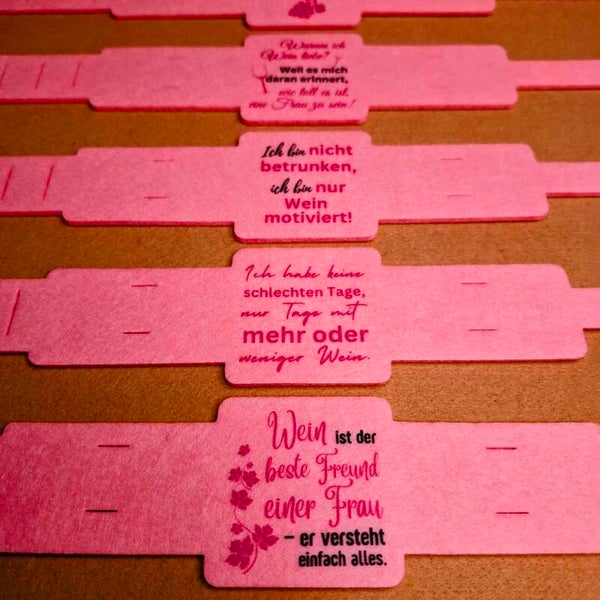 Warum ich
Wein liebe?
Weil es mich
daran erinnert,
wie toll es ist,
eine Frau zu sein!
Ich bin nicht
betrunken,
ich bin nur
Wein
motiviert!
Ich habe keine
schlechten Tage,
nur Tage mit
mehr oder
weniger Wein.
Wein ist der
beste Freund
einer Frau
– er versteht
einfach alles.